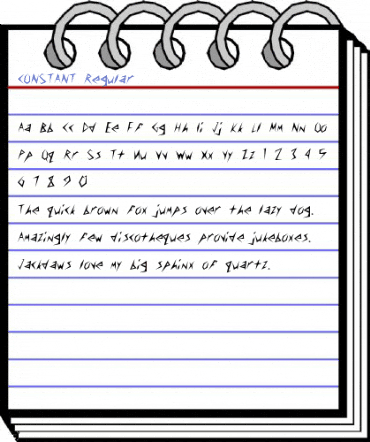 CONSTANT Regular
Aa Bb Cc Dd Ee Ff Gg Hh Ii Jj Kk Ll Mm Nn Oo
Pp Qq Rr Ss Tt Uu Vv Ww Xx Yy Zz 1 2 3 4 5
6 7 8 9 0
The quick brown fox jumps over the lazy dog.
Amazingly few discotheques provide jukeboxes.
Jackdaws love my big sphinx of quartz.